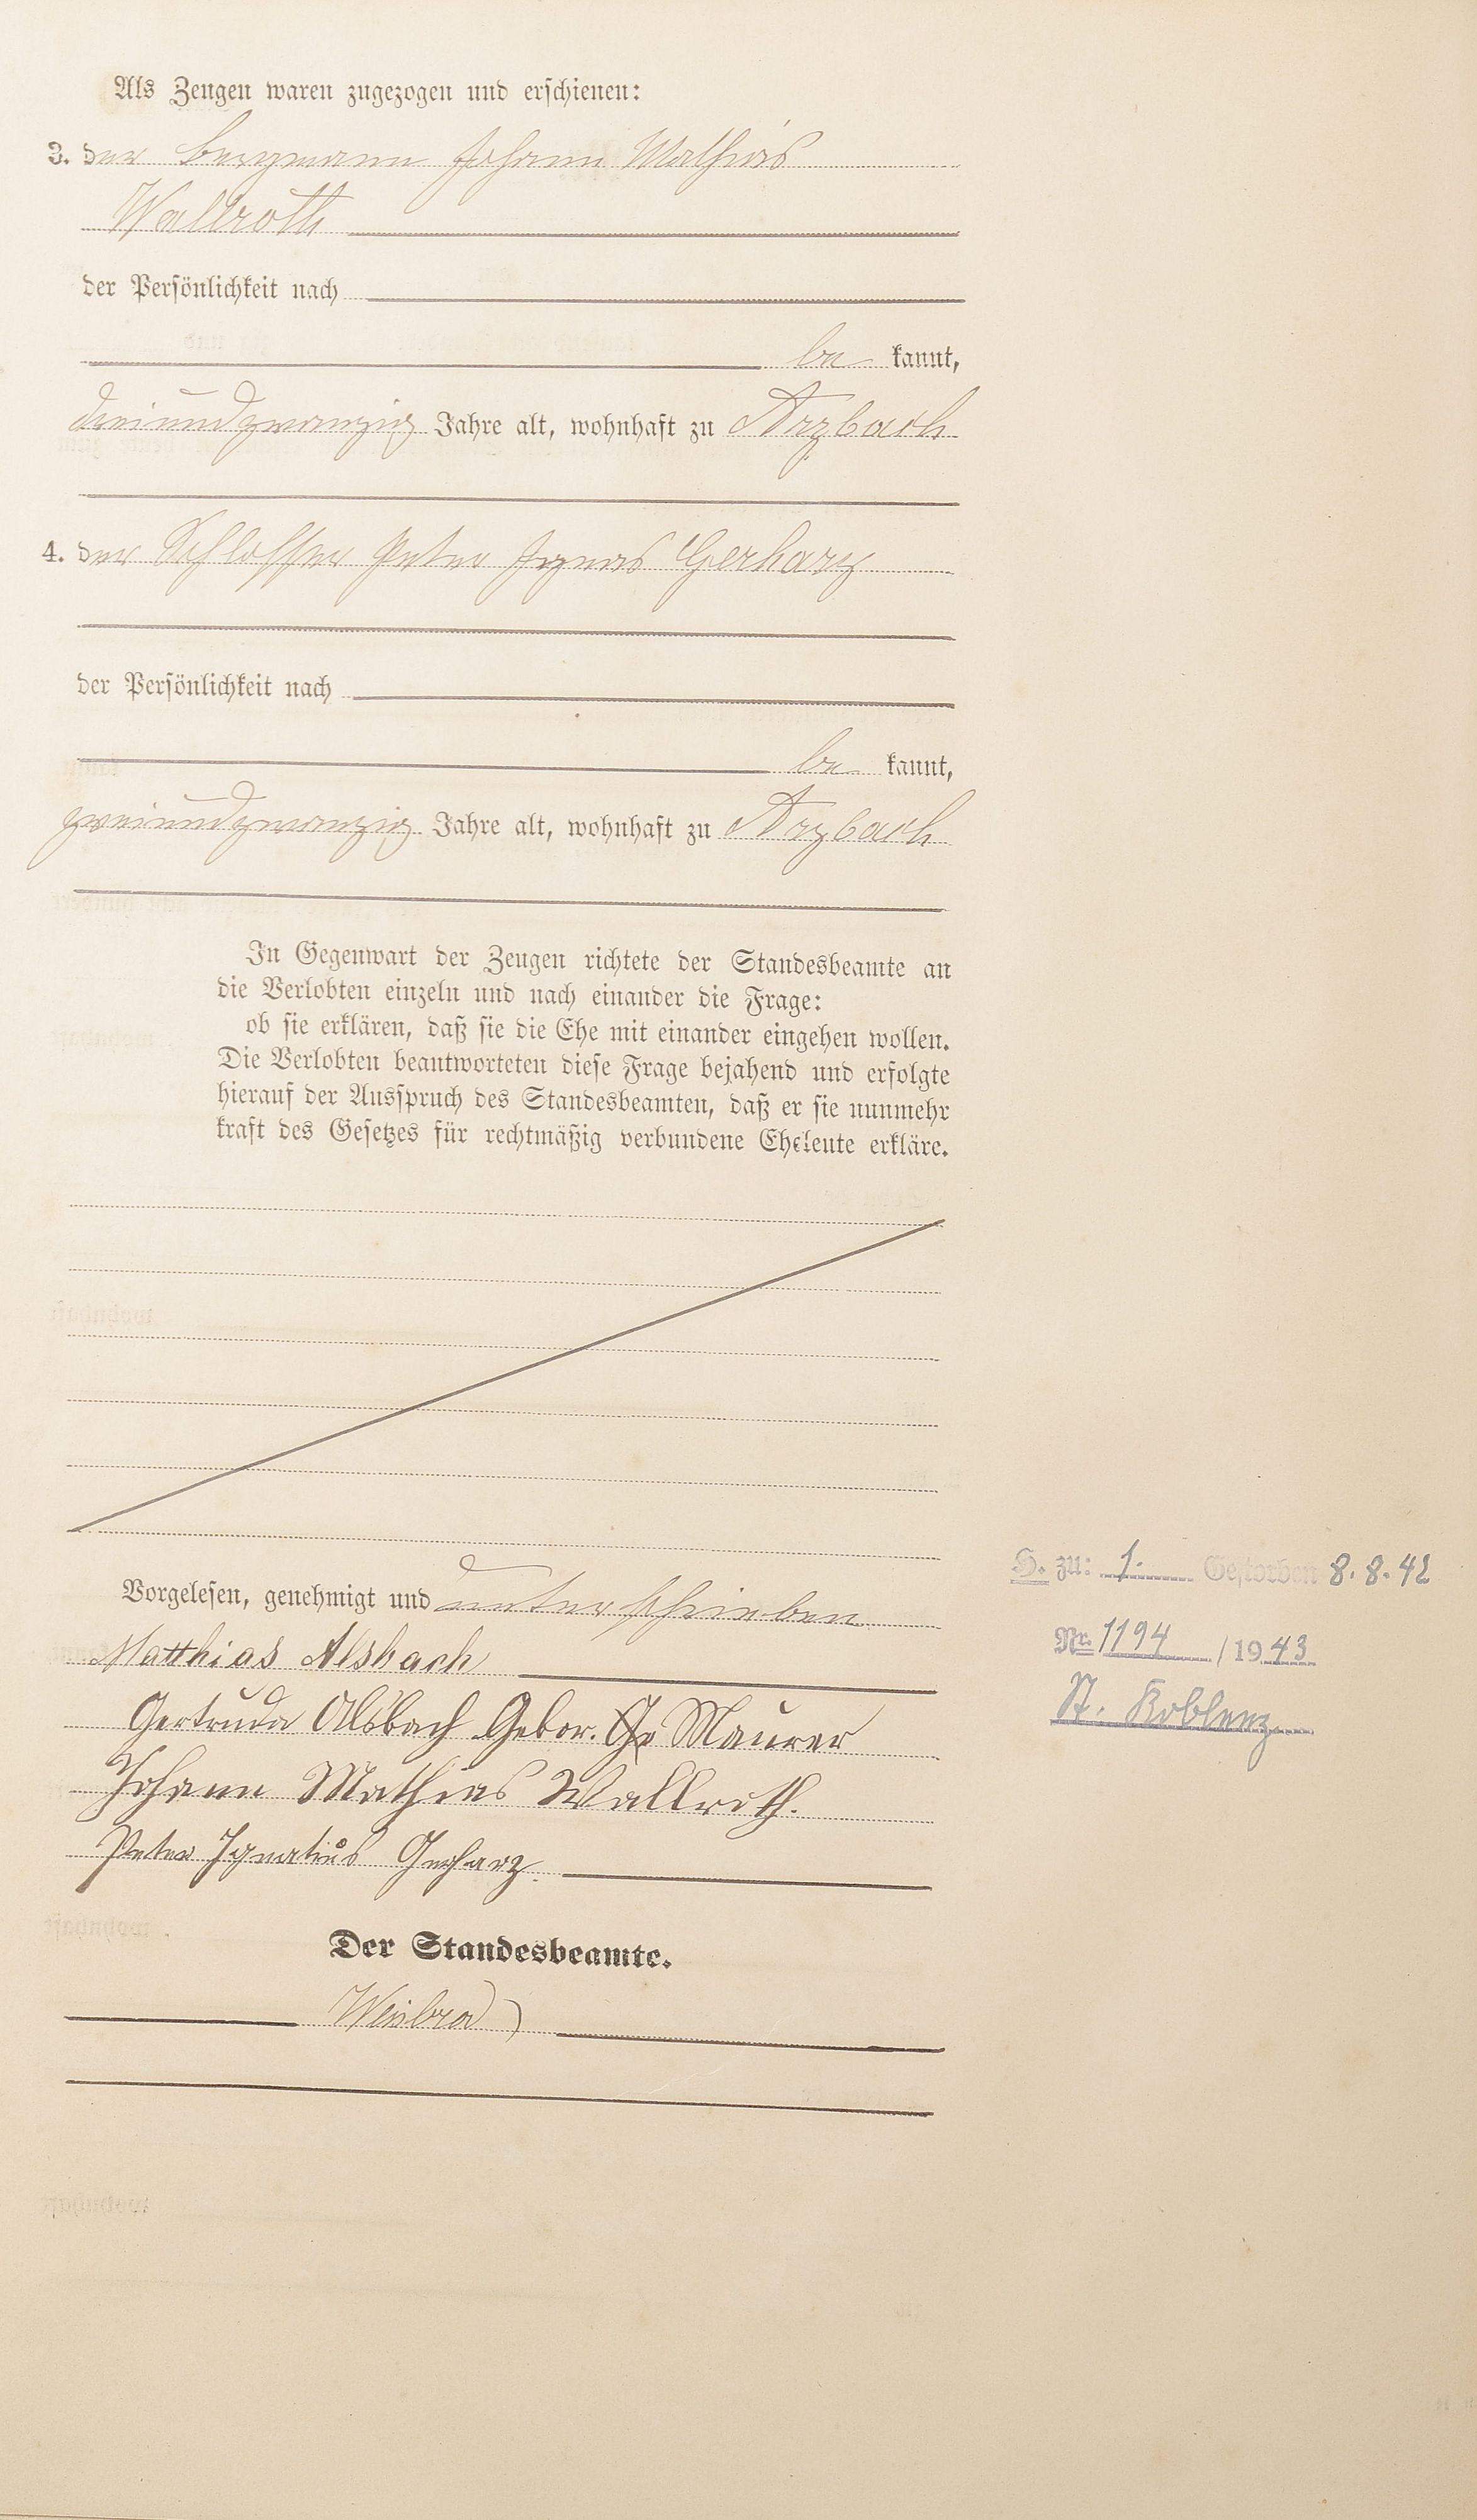 Als Zeugen waren zugezogen und erschienen:
3. der Bergmann Johann Mathias
Wallroth
der Persönlichkeit nach
be kannt,
dreiundzwanzig Jahre alt, wohnhaft zu Arzbach
4. der Schlosser Peter Ignas Gerharz
der Persönlichkeit nach
be kannt,
zweiundzwanzig Jahre alt, wohnhaft zu Arzbach
In Gegenwart der Zeugen richtete der Standesbeamte an
die Verlobten einzeln und nach einander die Frage:
ob sie erklären, daß sie die Ehe mit einander eingehen wollen.
Die Verlobten beantworteten diese Frage bejahend und erfolgte
hierauf der Ausspruch des Standesbeamten, daß er sie nunmehr
kraft des Gesetzes für rechtmäßig verbundene Eheleute erkläre.
Vorgelesen, genehmigt und unterschrieben
Matthias Alsbach
Gertruda Alsbach Gebor. Ge Maurer
Johann Mathias Wallroth.
Peter Ignatius Gerharz
Der Standesbeamte.
Weisbrod
H. zu: 1. Gestorben 8. 8. 42
Nr. 1194 / 19 43
St. Koblenz